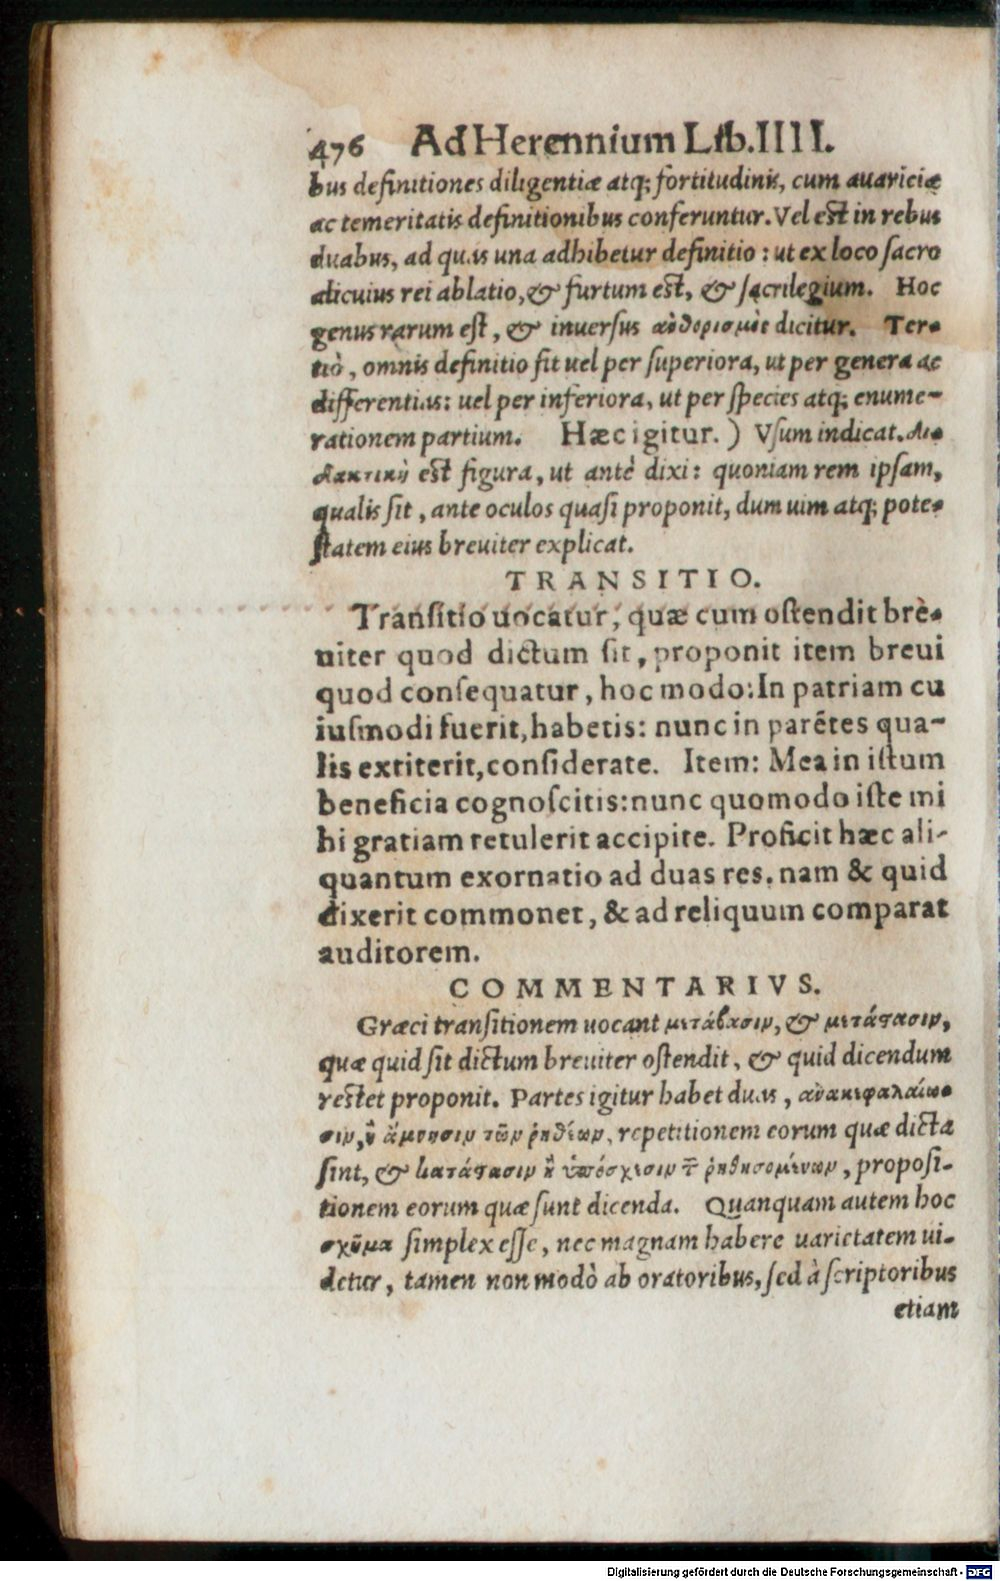 476 Ad Herennium Lib. IIII.
bus definitiones diligentiæ atq; fortitudinis, cum auariciæ
ac temeritatis definitionibus conferuntur. Vel est in rebus
duabus, ad quas una adhibetur definitio : ut ex loco sacro
alicuius rei ablatio, & furtum est, & sacrilegium. Hoc
genus rarum est, & inuersus ἀνθορισμὸς dicitur. Ter-
tiò, omnis definitio fit uel per superiora, ut per genera ac
differentias: uel per inferiora, ut per species atq; enume-
rationem partium. Hæc igitur. ) Vsum indicat. Δι-
δακτικὴ est figura, ut antè dixi: quoniam rem ipsam,
qualis sit, ante oculos quasi proponit, dum uim atq; pote-
statem eius breuiter explicat.
TRANSITIO.
Transitio uocatur, quæ cum ostendit brè-
uiter quod dictum sit, proponit item breui
quod consequatur, hoc modo: In patriam cu
iusmodi fuerit, habetis: nunc in parẽtes qua-
lis extiterit, considerate. Item: Mea in istum
beneficia cognoscitis: nunc quomodo iste mi
hi gratiam retulerit accipite. Proficit hæc ali-
quantum exornatio ad duas res. nam & quid
dixerit commonet, & ad reliquum comparat
auditorem.
COMMENTARIVS.
Græci transitionem uocant μετάβασιν, & μετάστασιν,
quæ quid sit dictum breuiter ostendit, & quid dicendum
restet proponit. Partes igitur habet duas, ἀνακεφαλαίω-
σιν, ἢ ἄμνησιν τῶν ῥηθέντων, repetitionem eorum quæ dicta
sint, & κατάστασιν ἢ ὑπόσχεσιν τ̃ ῥηθησομένων, proposi-
tionem eorum quæ sunt dicenda. Quanquam autem hoc
σχῆμα simplex esse, nec magnam habere uarietatem ui-
detur, tamen non modò ab oratoribus, sed à scriptoribus
etiam
Digitalisierung gefördert durch die Deutsche Forschungsgemeinschaft - DFG